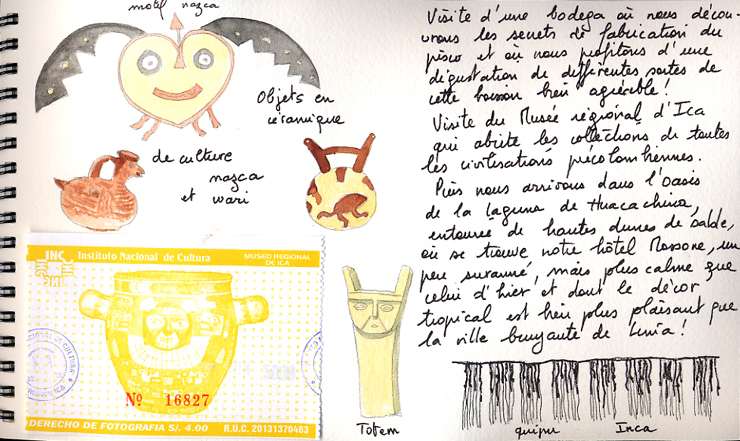 motif nazca
Objets en
céramique
de culture
nazca
et wari
INC
Instituto Nacional de Cultura
MUSEO REGIONAL
DE ICA
Nº 16827
DERECHO DE FOTOGRAFIA S/. 4.00
R.U.C. 20131370483
Totem
Visite d'une bodega où nous décou-
vrons les secrets de fabrication du
pisco et où nous profitons d'une
dégustation de différentes sortes de
cette boisson bien agréable !
Visite du Musée régional d'Ica
qui abrite les collections de toutes
les civilisations précolombiennes.
Puis nous arrivons dans l'oasis
de la laguna de Huacachina,
entourée de hautes dunes de sable,
où se trouve notre hôtel Mossone, un
peu suranné, mais plus calme que
celui d'hier et dont le décor
tropical est bien plus plaisant que
la ville bruyante de Lima !
quipu Inca